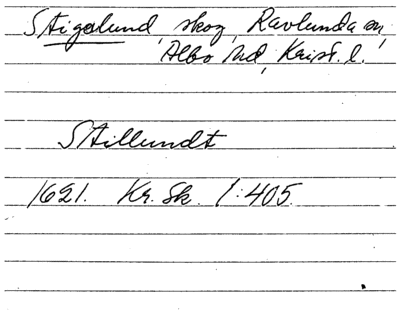 Stigalund, skog, Ravlunda sn,
Albo hd, Krist. l.
Stillundt
1621. Kr. Sk. 1:405.